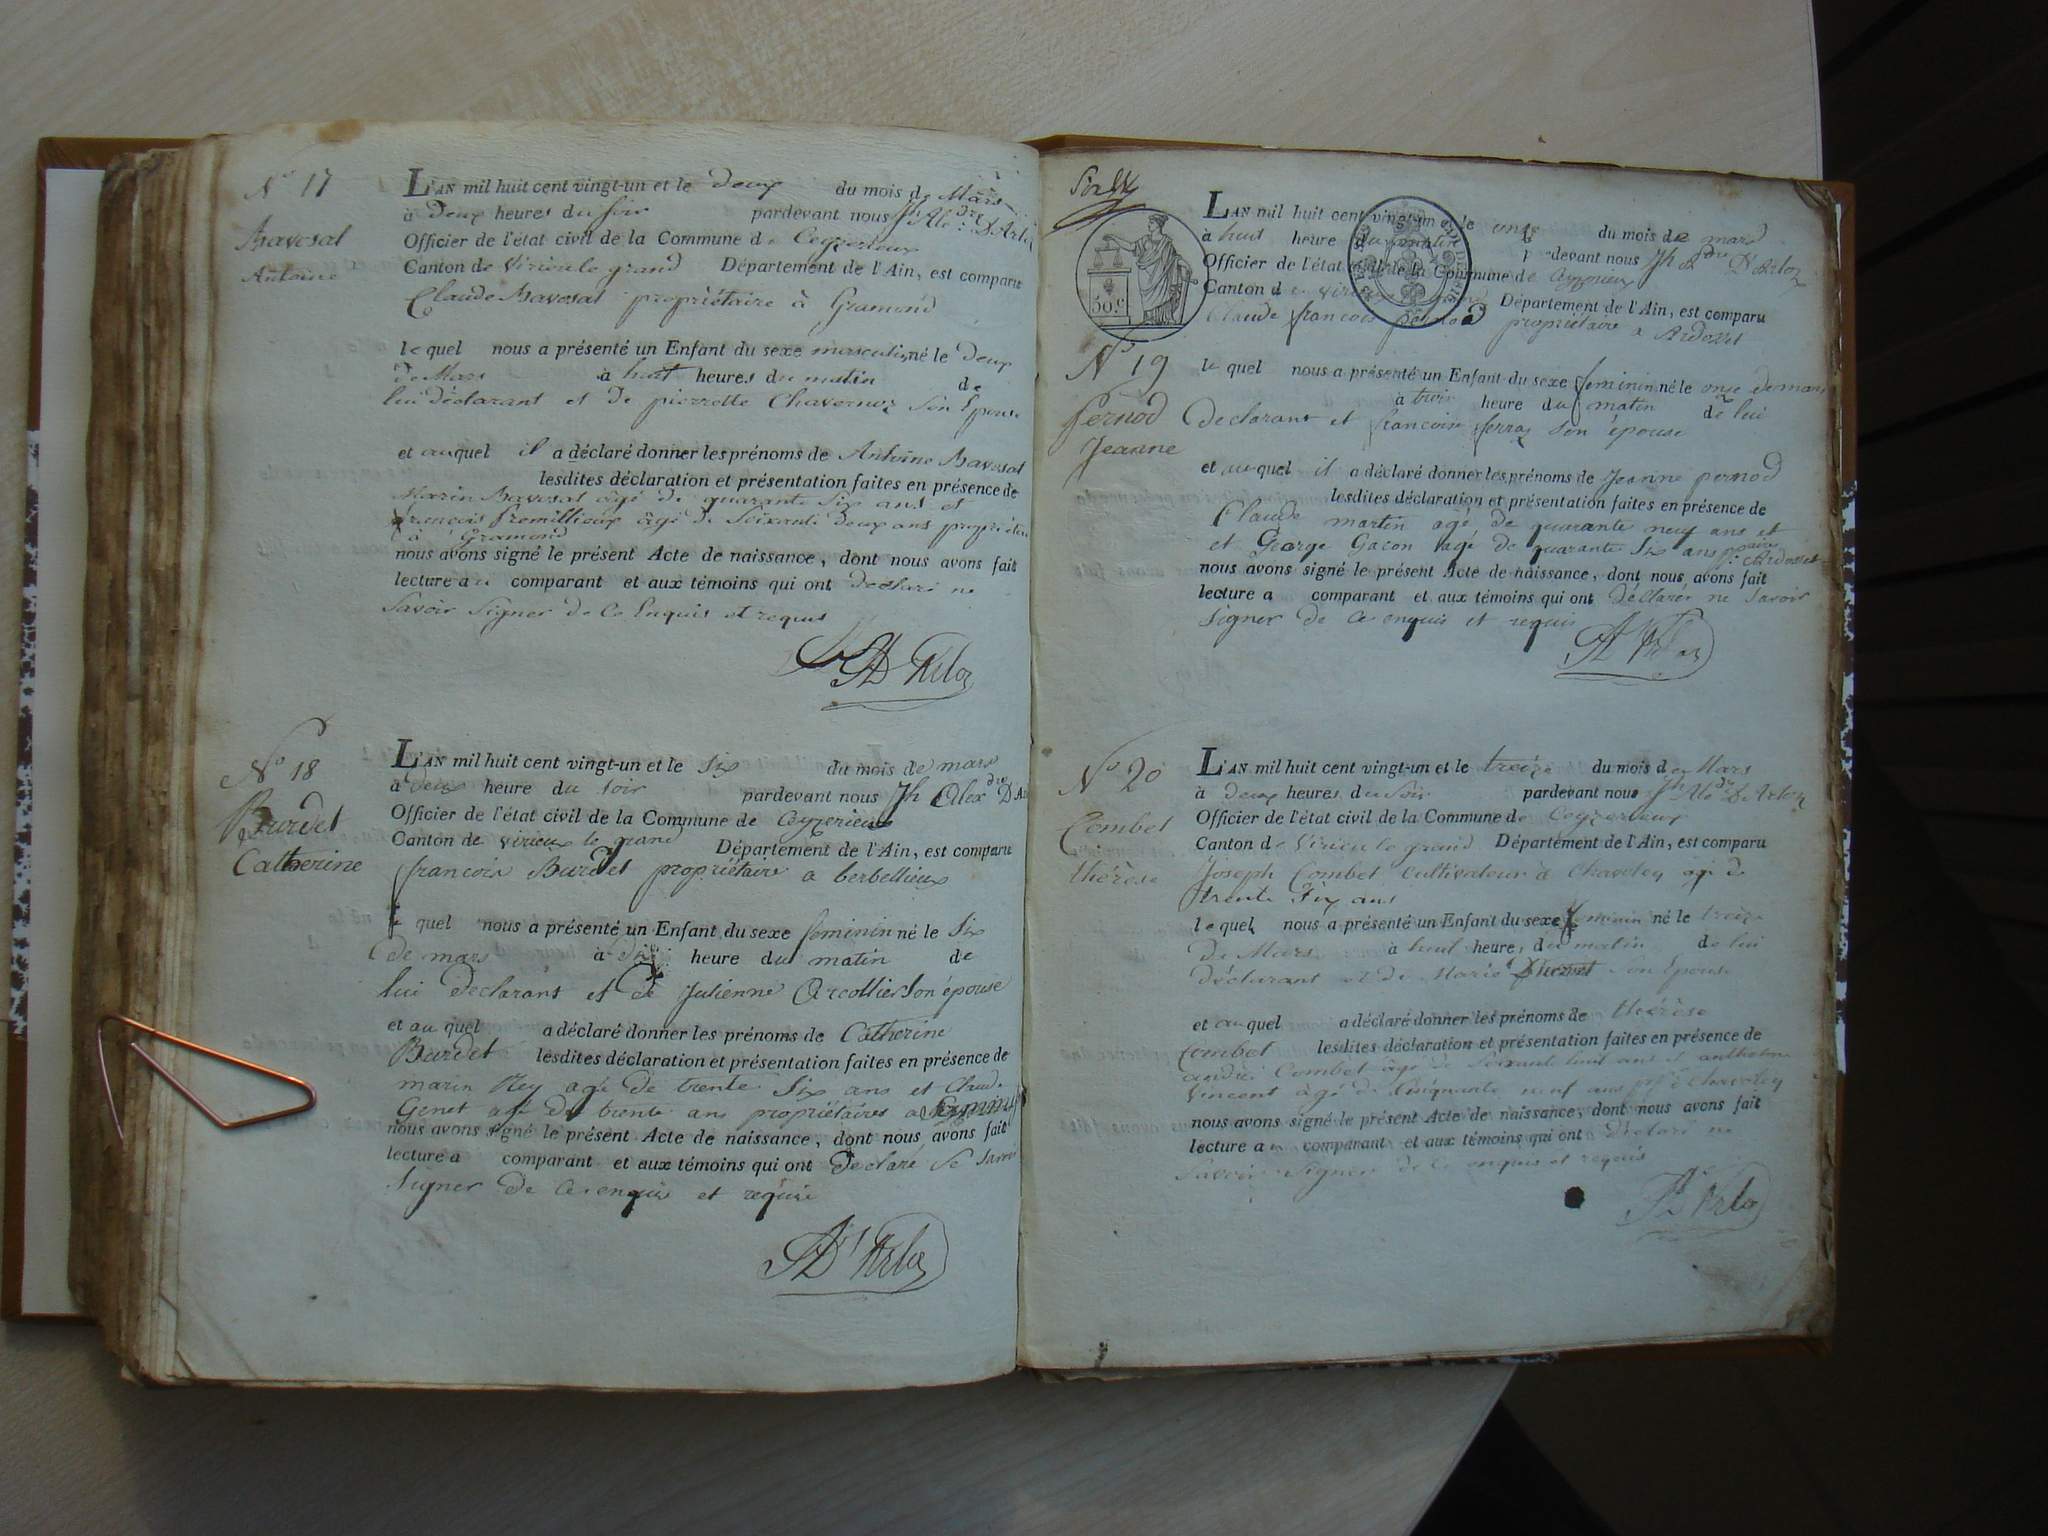 N° 17
Bavosat
Antoine
L'AN mil huit cent vingt-un et le deux du mois de Mars
à Deux heures du soir pardevant nous Jh Ale.dre D'Arloz
Officier de l'état civil de la Commune de Ceyzerieux
Canton de Virieu le grand Département de l'Ain, est comparu
Claude Bavosat propriétaire à Gramond
le quel nous a présenté un Enfant du sexe masculin né le Deux
de Mars à huit heures du matin de
lui déclarant et de pierrette Chavernoz Son Epouse
et auquel il a déclaré donner les prénoms de Antoine Bavosat
lesdites déclaration et présentation faites en présence de
Marin Bavosat âgé de quarante Six ans et
françois Promillieux âgé de Soixante deux ans propriétaires
à Gramond
nous avons signé le présent Acte de naissance, dont nous avons fait
lecture au comparant et aux témoins qui ont déclaré ne
Savoir Signer de Ce Enquis et requis
AD'Arloz
N° 18
Burdet
Catherine
L'AN mil huit cent vingt-un et le six du mois de mars
à deux heure du soir pardevant nous Jh Alex dre D'Ar
Officier de l'état civil de la Commune de Ceyzerieux
Canton de virieux le grand Département de l'Ain, est comparu
francois Burdet propriétaire a berbellieux
le quel nous a présenté un Enfant du sexe feminin né le Six
de mars à dix heure du matin de
lui declarans et de Julienne Arcollier Son épouse
et au quel a déclaré donner les prénoms de Catherine
Burdet lesdites déclaration et présentation faites en présence de
marin Rey agé de trente Six ans et Claude
Genet agé de trente ans propriétaires a
nous avons signé le présent Acte de naissance, dont nous avons fait
lecture a comparant et aux témoins qui ont declaré ne savoir
signer de ce enquis et requis
AD'Arloz
50 c
L'AN mil huit cent vingt-un et le onze du mois de mars
à huit heure du matin pardevant nous Jh Adre D'Arloz
Officier de l'état civil de la Commune de Ceyzerieux
Canton de virieu grand Département de l'Ain, est comparu
Claude francois pernod propriétaire a Ardosset
N° 19
Pernod
Jeanne
le quel nous a présenté un Enfant du sexe feminin né le onze de mars
à trois heure du matin de lui
declarant et francoise ferraz son épouse
et au quel il a déclaré donner les prénoms de Jeanne pernod
lesdites déclaration et présentation faites en présence de
Claude martin agé de quarante neuf ans et
et George Gacon agé de quarante Six ans p.taires Ardosset
nous avons signé le présent Acte de naissance, dont nous avons fait
lecture a comparant et aux témoins qui ont déclarér ne savoir
signer de ce enquis et requis
AD'Arloz
N° 20
Combet
thérèse
L'AN mil huit cent vingt-un et le treize du mois de Mars
à deux heures du Soir pardevant nous Jh Ale dre D'Arloz
Officier de l'état civil de la Commune de Ceyzerieux
Canton de Virieu le grand Département de l'Ain, est comparu
Joseph Combet Cultivateur à Chavoley agé de
trente Six ans
le quel nous a présenté un Enfant du sexe feminin né le treize
de Mars à huit heures du matin de lui
déclarant et de Marie Son Epouse
et au quel a déclaré donner les prénoms de thérèse
Combet lesdites déclaration et présentation faites en présence de
andré Combet âgé de Soixante huit ans et anthelme
Vincent âgé de Cinquante neuf ans à Chavoley
nous avons signé le présent Acte de naissance, dont nous avons fait
lecture au comparant et aux témoins qui ont déclaré ne
Savoir Signer de Ce enquis et requis
AD'Arloz